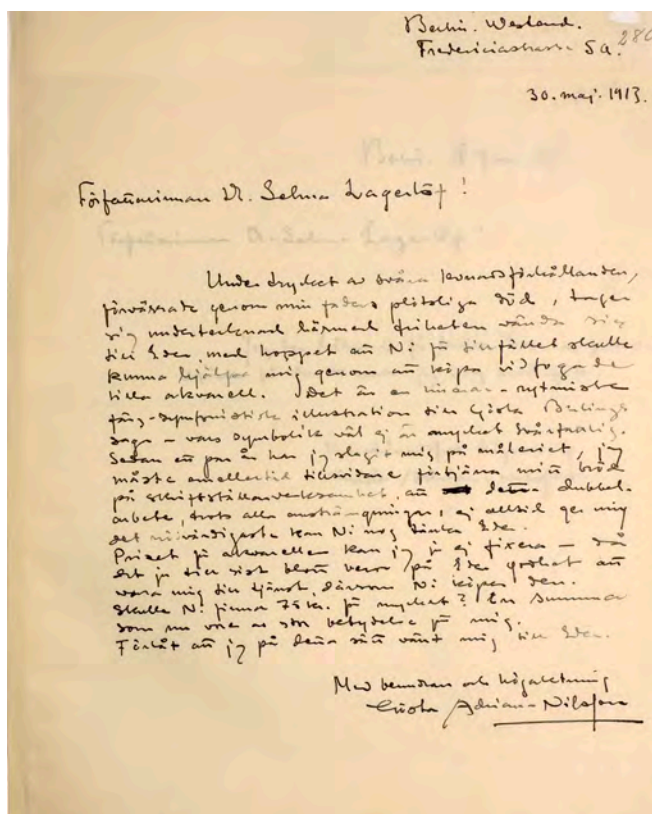 Berlin. Westend.
Fredericiastrasse 5a.
280
30. maj. 1913.
Författarinnan Dr. Selma Lagerlöf!
Under trycket av svåra levnadsförhållanden,
förvärrade genom min faders plötsliga död, tager
sig undertecknad härmed friheten vända sig
till Eder, med hoppet att Ni för tillfället skulle
kunna hjälpa mig genom att köpa vidfogade
lilla akvarell. Det är en lineär-rytmisk
färg-symfonistisk illustration till Gösta Berlings
saga – vars symbolik väl ej är mycket svårfattlig.
Sedan ett par år har jag slagit mig på måleriet, jag
måste emellertid tillsvidare förtjäna mitt bröd
på skriftställarverksamhet, att detta dubbel-
arbete, trots alla ansträngningar, ej alltid ger mig
det nödvändigaste kan Ni nog tänka Eder.
Priset på akvarellen kan jag ju ej fixera – då
det ju till sist blott beror på Eder godhet att
vara mig till tjänst, därsom Ni köper den.
Skulle Ni finna 75 kr. för mycket? En summa
som nu vore av stor betydelse för mig.
Förlåt att jag på detta sätt vänt mig till Eder.
Med beundran och högaktning
Gösta Adrian-Nilsson